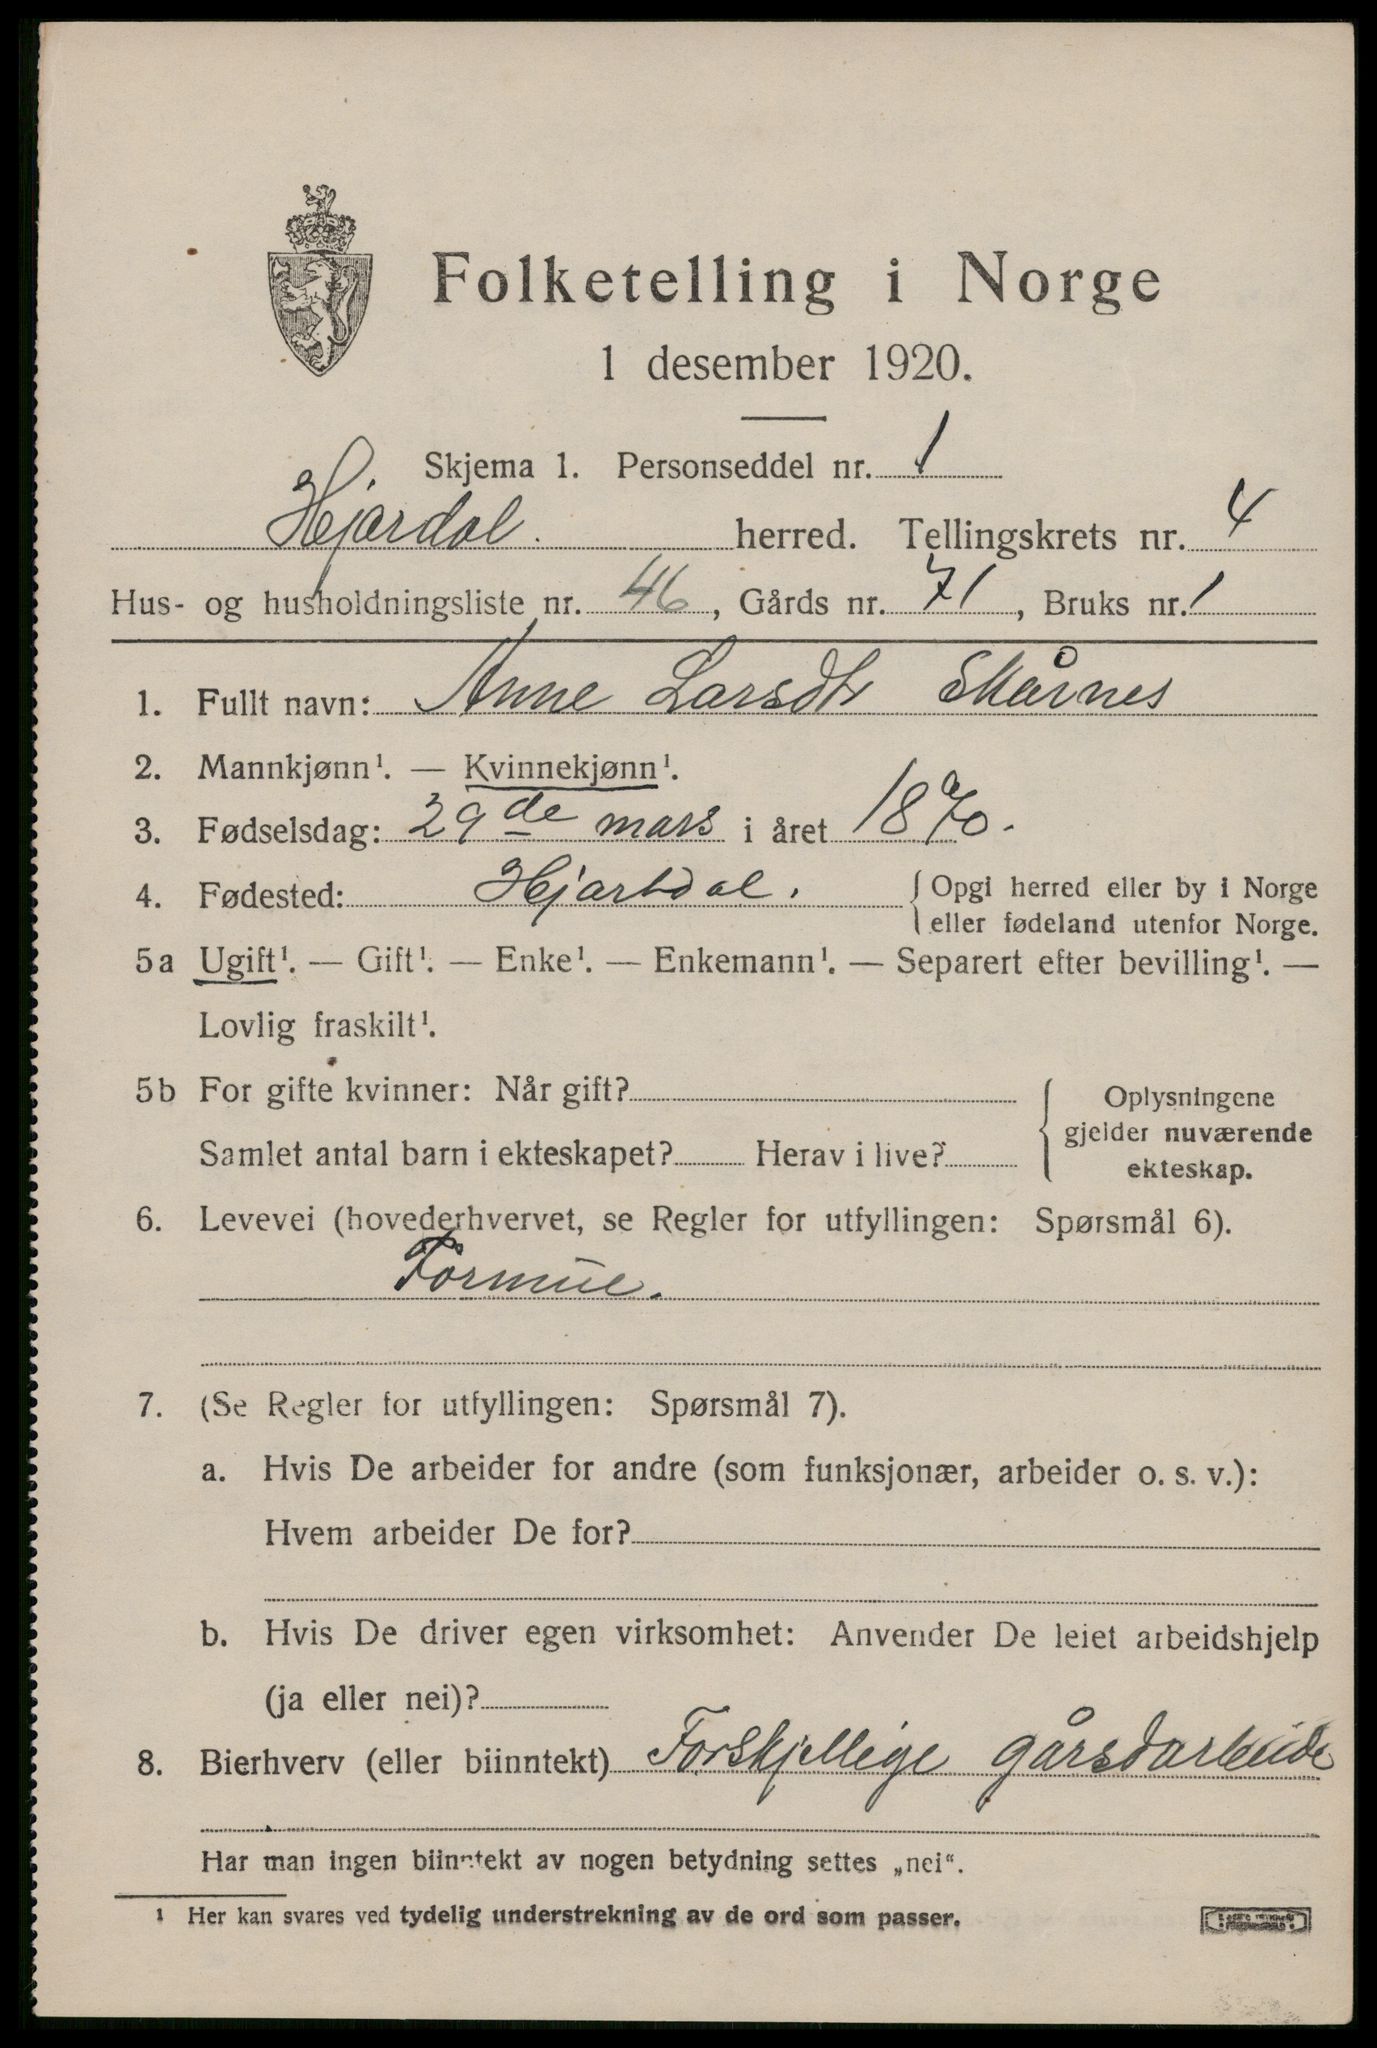 Folketelling i Norge
1 desember 1920.
Skjema 1. Personseddel nr. 1
Hjardal. herred. Tellingskrets nr. 4
Hus- og husholdningsliste nr. 46, Gårds nr. 71, Bruks nr. 1
1. Fullt navn: Anne Larsdtr Skårnes
2. Mannkjønn¹. — Kvinnekjønn¹.
3. Fødselsdag: 29de mars i året 1870.
4. Fødested: Hjartdal. { Opgi herred eller by i Norge
eller fødeland utenfor Norge.
5a Ugift¹. — Gift¹. — Enke¹. — Enkemann¹. — Separert efter bevilling¹. —
Lovlig fraskilt¹.
5b For gifte kvinner: Når gift?
Samlet antal barn i ekteskapet? Herav i live?
Oplysningene
gjelder nuværende
ekteskap.
6. Levevei (hovederhvervet, se Regler for utfyllingen: Spørsmål 6).
Formue.
7. (Se Regler for utfyllingen: Spørsmål 7).
a. Hvis De arbeider for andre (som funksjonær, arbeider o. s. v.):
Hvem arbeider De for?
b. Hvis De driver egen virksomhet: Anvender De leiet arbeidshjelp
(ja eller nei)?
8. Bierhverv (eller biinntekt) Forskjellige gårsdarbeide
Har man ingen biinntekt av nogen betydning settes „nei“.
¹ Her kan svares ved tydelig understrekning av de ord som passer.